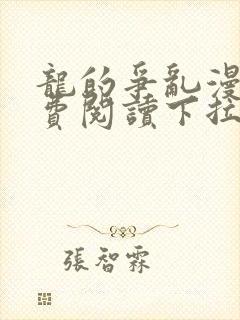 龍的爭亂漫
費閱讀下拉
張智霖